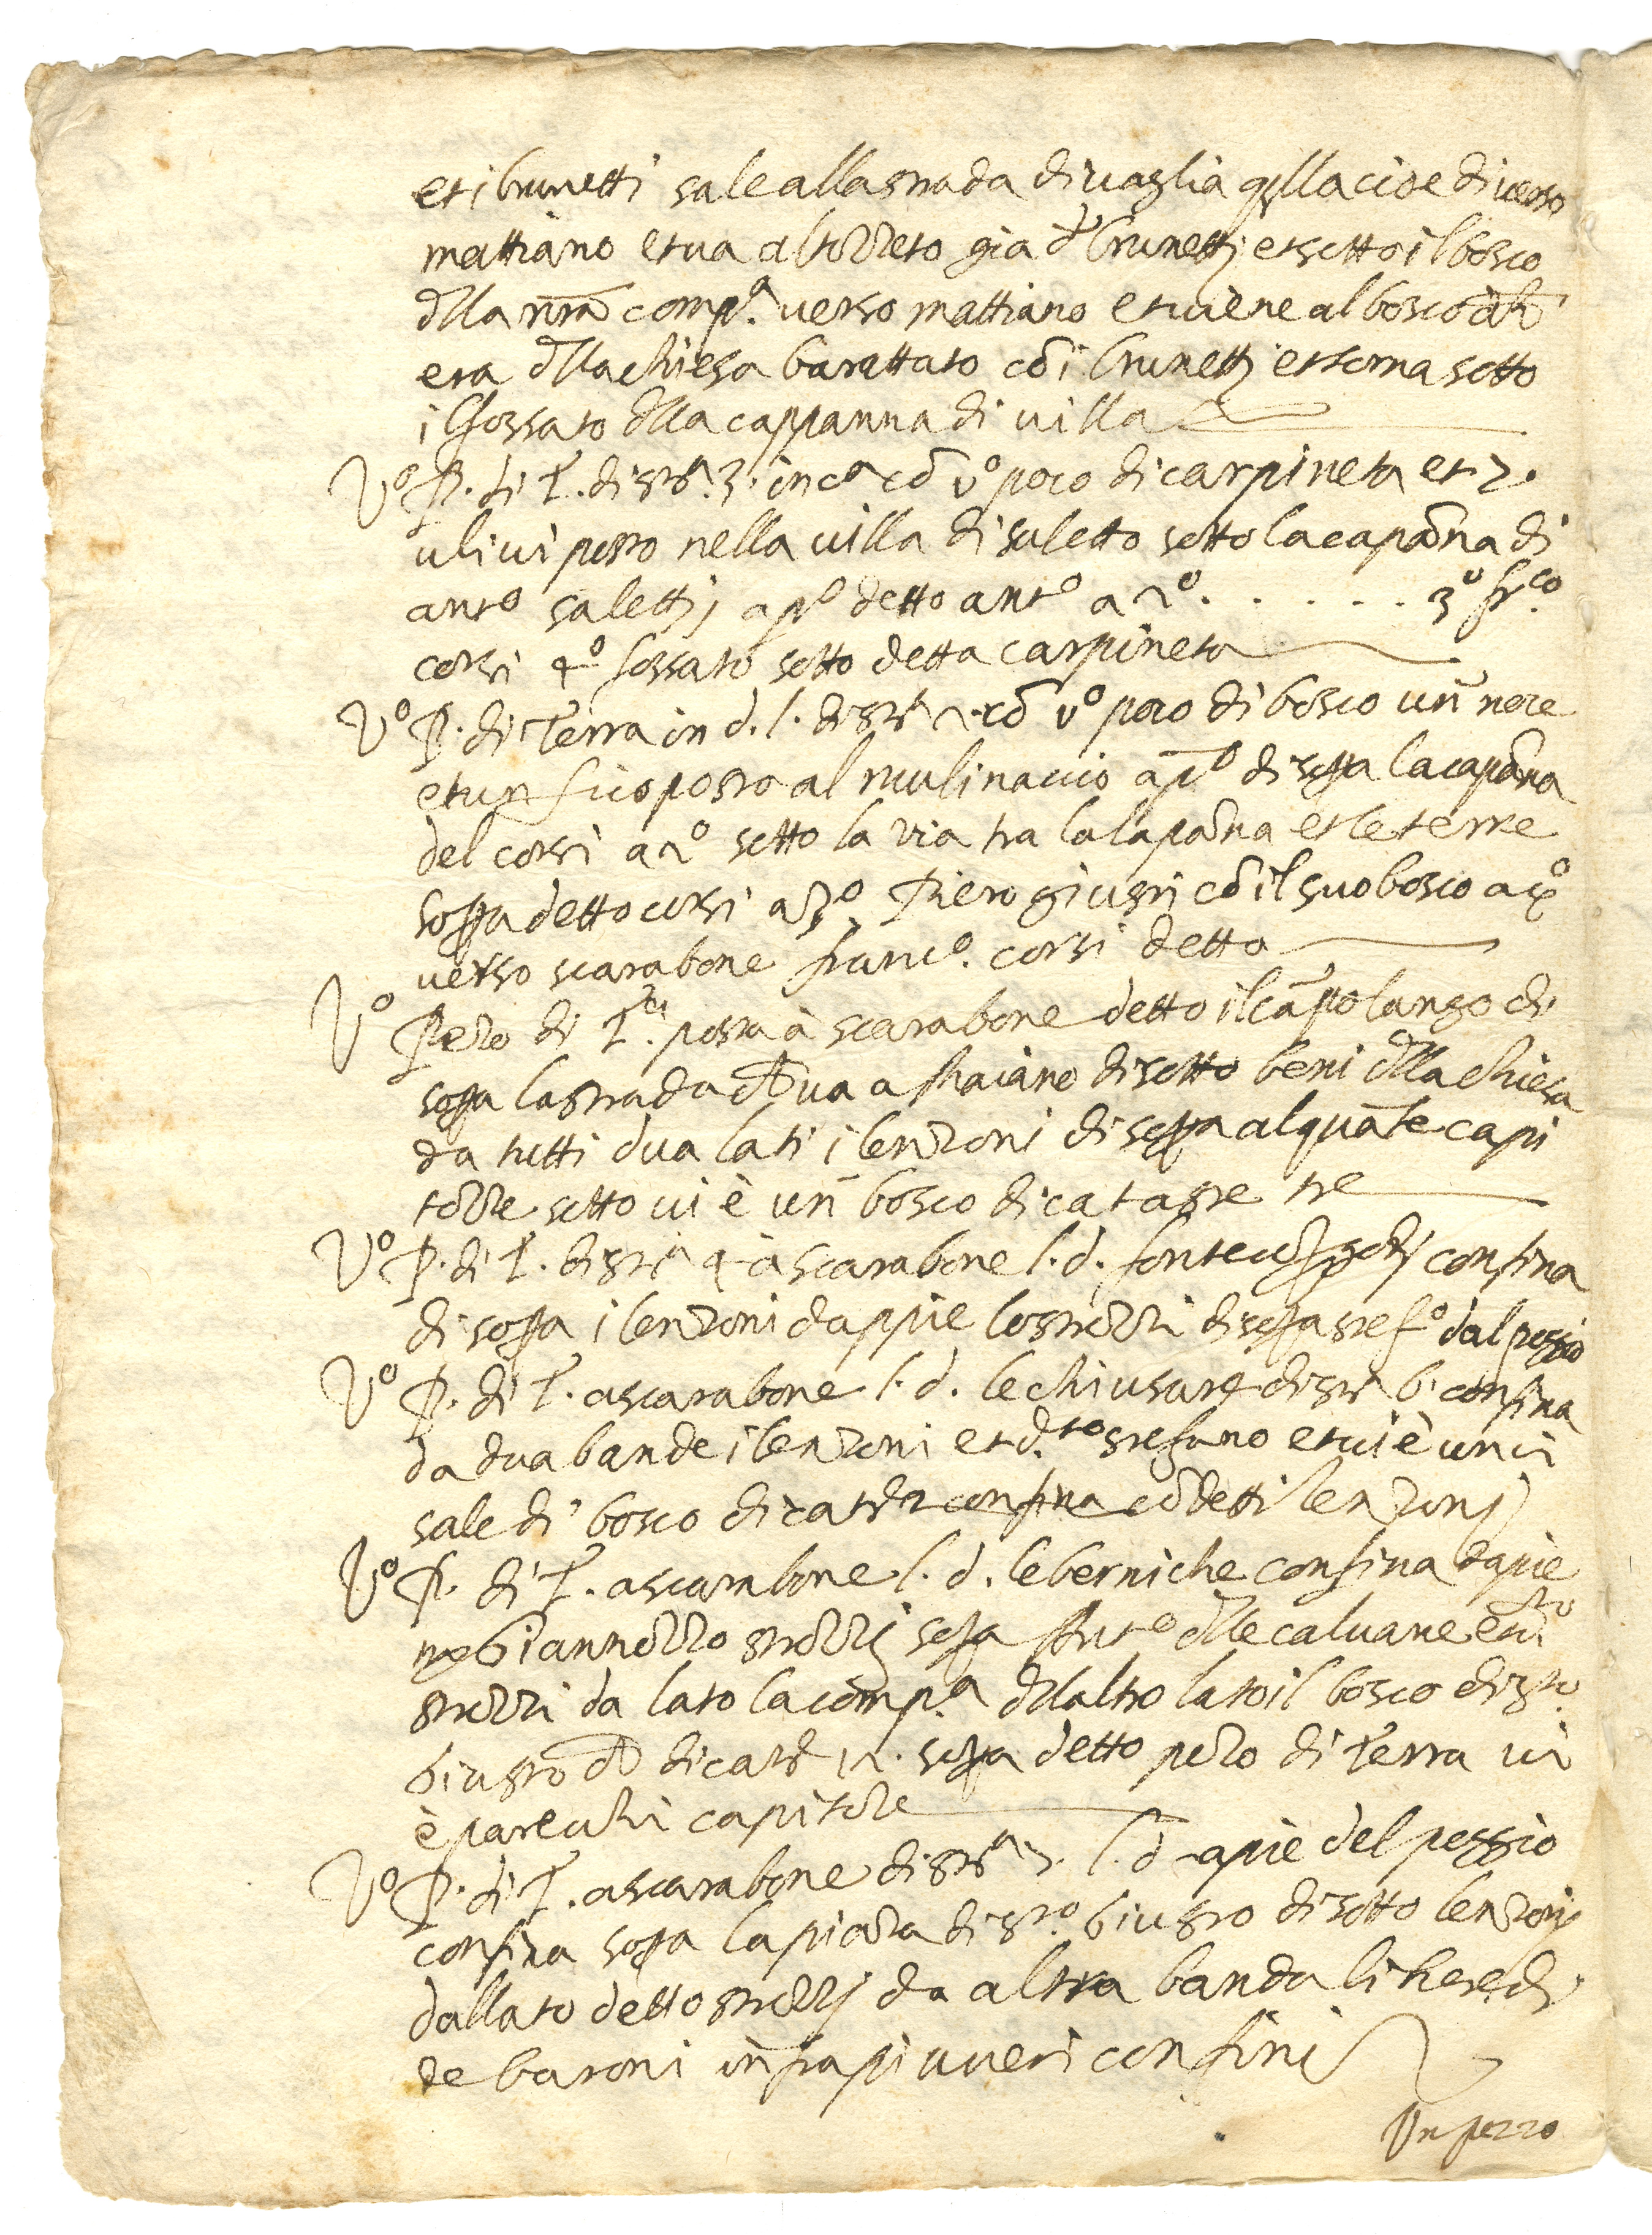 et i brunetti sale alla strada di uaglia qlla cioe di uerso
mattiano et ua al pozzeto gia d brunettj et sotto il bosco
dlla nra comp.a uerso mattiano et uiene al bosco ch
era dlla chiesa barattato cō i brunettj et torna sotto
il fossato dlla cappanna di uilla
Vo P. di T. di stra 3. inca cō vo poco di carpineta et 2.
uliui posto nella uilla di saletto sotto la capāna di
anto salettj a po detto anto a 2o . . . . . . 3o frco
corsi 4o fossato sotto detta carpineta
Vo P. di Terra in d. l. di stra 2. cō vo poco di bosco un noce
et un fico posto al mulinaccio a po di sopa la capāna
del corsi a 2o sotto la via tra la capāna et le terre
sopa detto corsi a 3o Piero giusti cō il suo bosco a 4o
uerso scarabone franco. corsi detto
Vo Pezo di Tra posta à scarabone detto il cāpo lungo di
sopa la strada ch ua a Maiano di sotto beni dlla chiesa
da tutti dua lati i lenzoni di sopa alquāte capi
tozze sotto ui è un bosco di cataste tre
Vo P. di T. di stra 4 à scarabone l. d. confina
di sopa i lenzoni dappie lo strozzi di sopa stefo dal poggio
Vo P. di T. a scarabone l. d. le chiusure di stra 6. confina
da dua bande i lenzoni et d.to stefano et ui è un ci
sale di bosco di catre 2 confina cō detti lenzonj
Vo P. di T. a scarabone l. d. le berniche confina dapie
Giannozzo strozzj sopa Anto dlle caluane et dto
strozzi da lato la comp.a ddlaltro lato il bosco di sto.
Giusto ch di catre 12. sopa detto pezo di Terra ui
è parechi capitoze
Vo P. di T. a scarabone di stra 3. l. d apie del poggio
confina sopa la piaza di sto. Giusto di sotto lenzonj
dallato detto strozzj da altra banda li heredi
de baroni infra piu ueri confini
Un pezzo